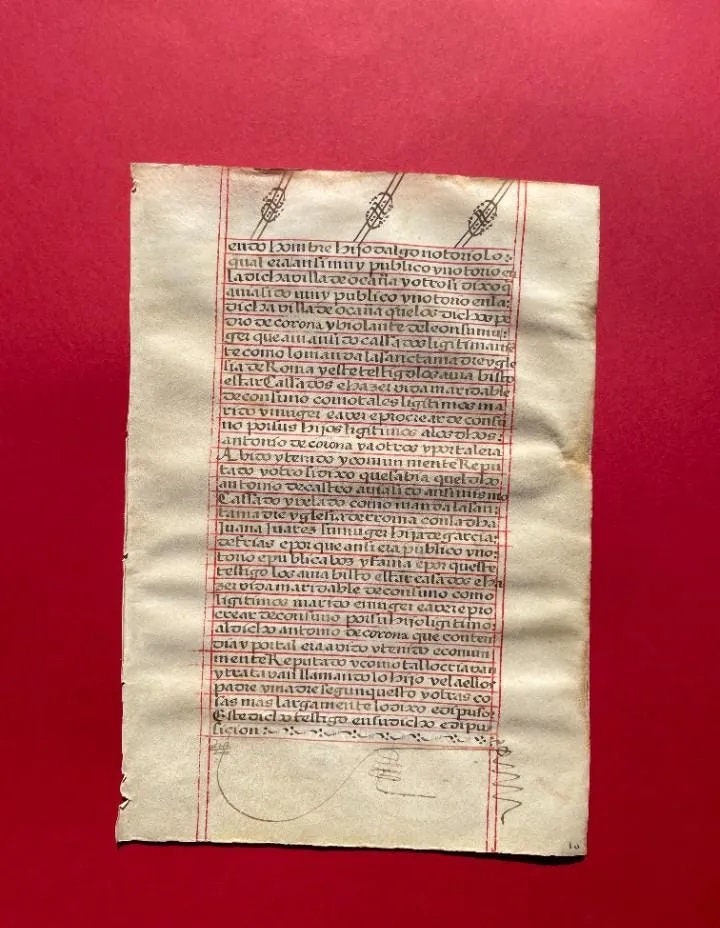 endo hombre hijo dalgo notorio lo:
qual era ansi muy publico y notorio en
la dicha villa de ocaña y otro si dixo q
avia sido muy publico y notorio en la:
dicha villa de ocaña quelos dichos pe
dro de corona y biolante de leon su mu
ger que avian sido casados ligitimamẽ
te como lo manda la sancta madre ygle
sia de Roma y este testigo los avia bisto
estar Cassados e hazer vida maridable
de consuno como tales ligitimos ma
rido y muger e aver e procrear de consu
no por sus hijos ligitimos a los dhos:
antonio de corona y a otros y por tal era
Abido y tenido y comun mente Repu
tado y otro si dixo que sabia quel dho
antonio de castro avia sido ansi mismo
Cassado y velado como manda la san
ta madre yglesia de rroma con la dha
Juana Juarez su muger hija de garcia:
de frias e por que ansi era publico y no:
torio e publica boz y fama e por queste
testigo los avia bisto estar casados e ha
zer vida maridable de consuno como
ligitimos marido e muger e aver e pro
crear de consuno por su hijo ligitimo
al dicho antonio de corona que conten
dia y por tal era avido y tenido e comun
mente Reputado y como tal lo criavan
y tratavan llamando lo hijo y el a ellos
padre y madre segun questo y otras co
sas mas largamente lo dixo e dipuso:
Este dicho testigo en su dicho e dipu
sicion:
10